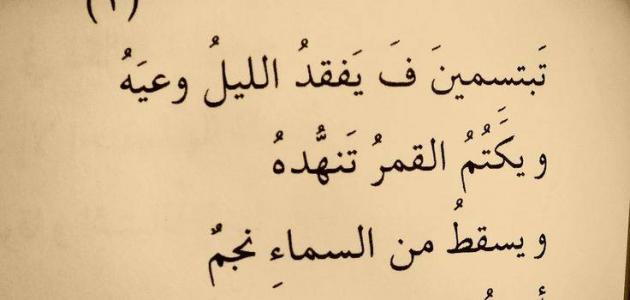 (١)
تَبتسمينَ فَ يَفقدُ الليلُ وعيَهُ
ويكَتُمُ القمرُ تَنهُّدهُ
ويسقطُ من السماءِ نجمٌ